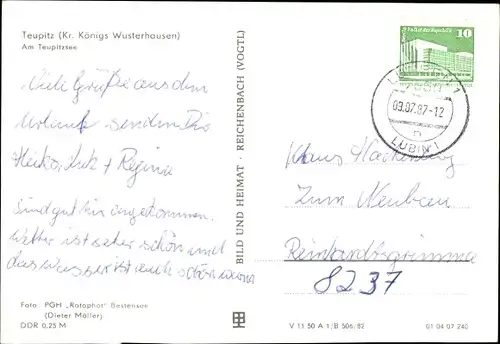 Teupitz (Kr. Königs Wusterhausen)
Am Teupitzsee
Viele Grüße aus dem
Urlaub senden Dir
Heiko, und Regina
Sind gut hir angekommen.
Wetter ist seher schön und
das wasser ist auch schön warm
Foto: PGH „Rotophot" Bestensee
(Dieter Möller)
DDR 0,25 M
BILD UND HEIMAT · REICHENBACH (VOGTL)
V 11 50 A 1/B 506/82
01 04 07 240
10
09.07.87-12
n
LÜBBEN 1
LUBIN 1
Klaus
Zum Neubau
Reinhardtsgrimma
8237